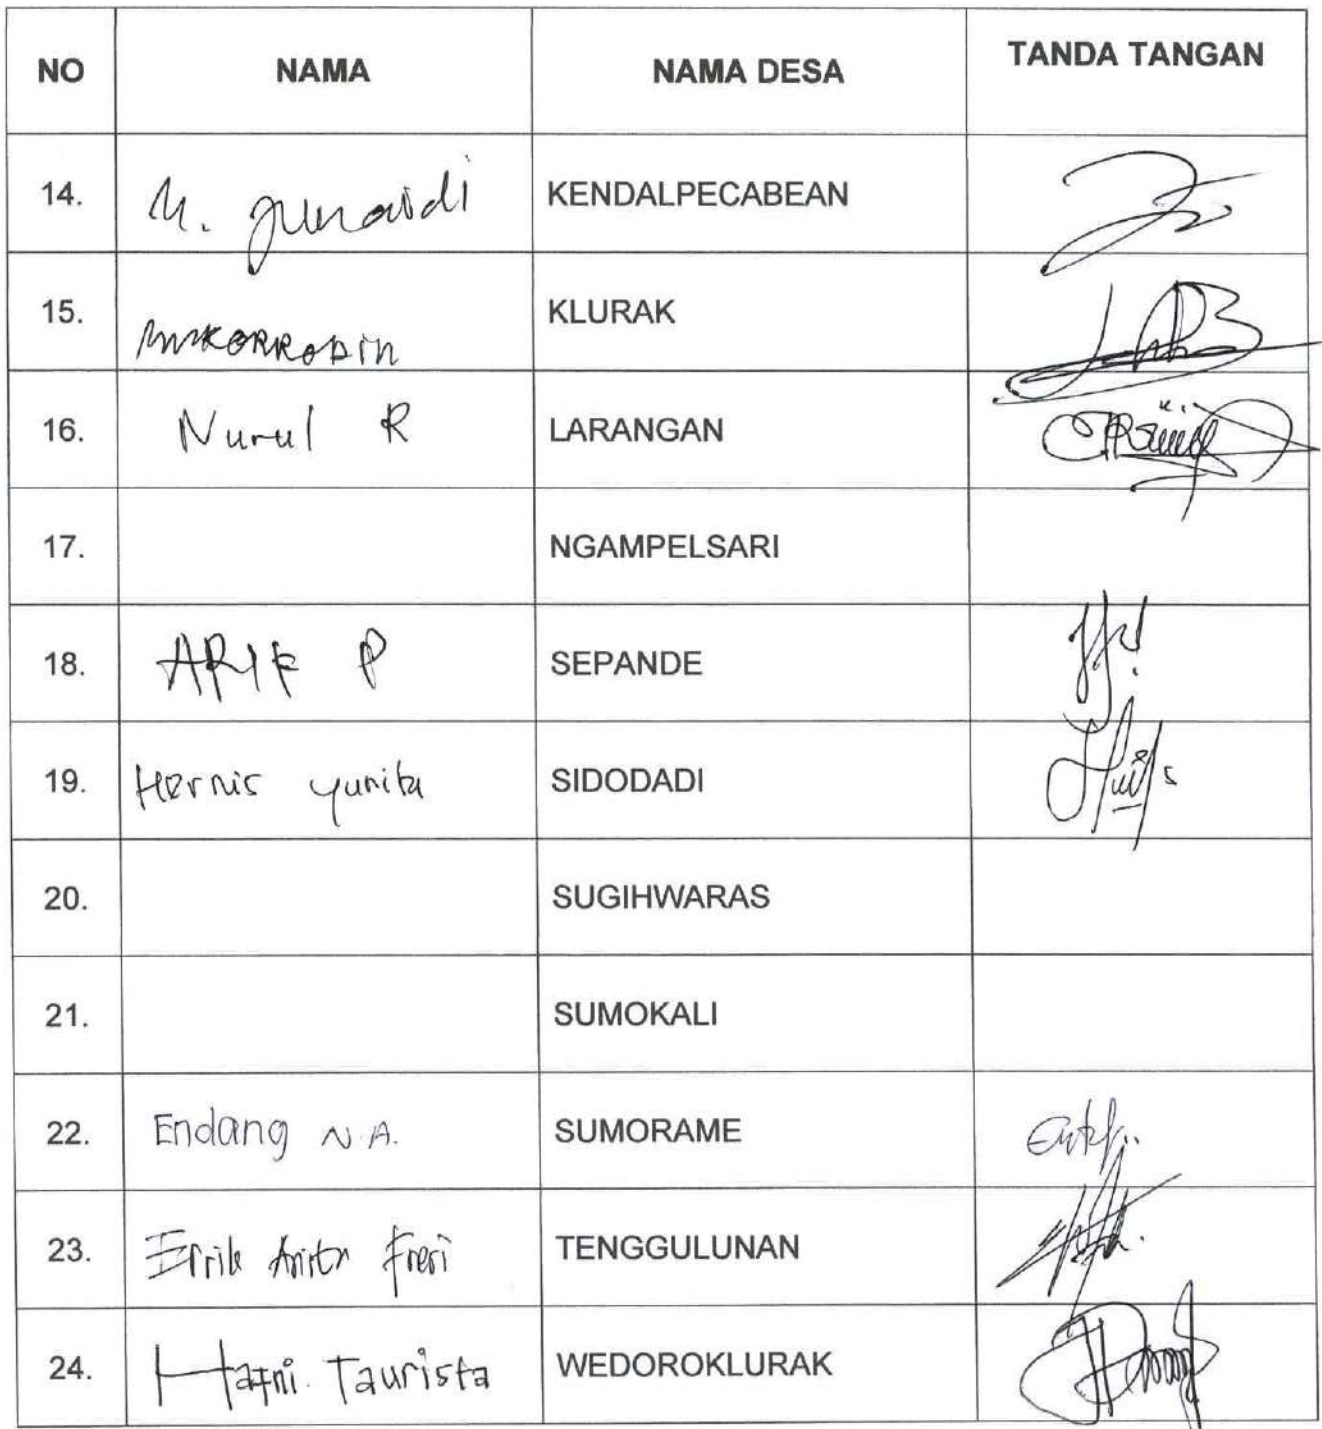 NO NAMA NAMA DESA TANDA TANGAN
14. M. Junaidi KENDALPECABEAN
15. KLURAK
16. Nurul R LARANGAN
17. NGAMPELSARI
18. ARIF P SEPANDE
19. Hernis yunita SIDODADI
20. SUGIHWARAS
21. SUMOKALI
22. Endang N.A. SUMORAME
23. TENGGULUNAN
24. Hafni. Taurista WEDOROKLURAK